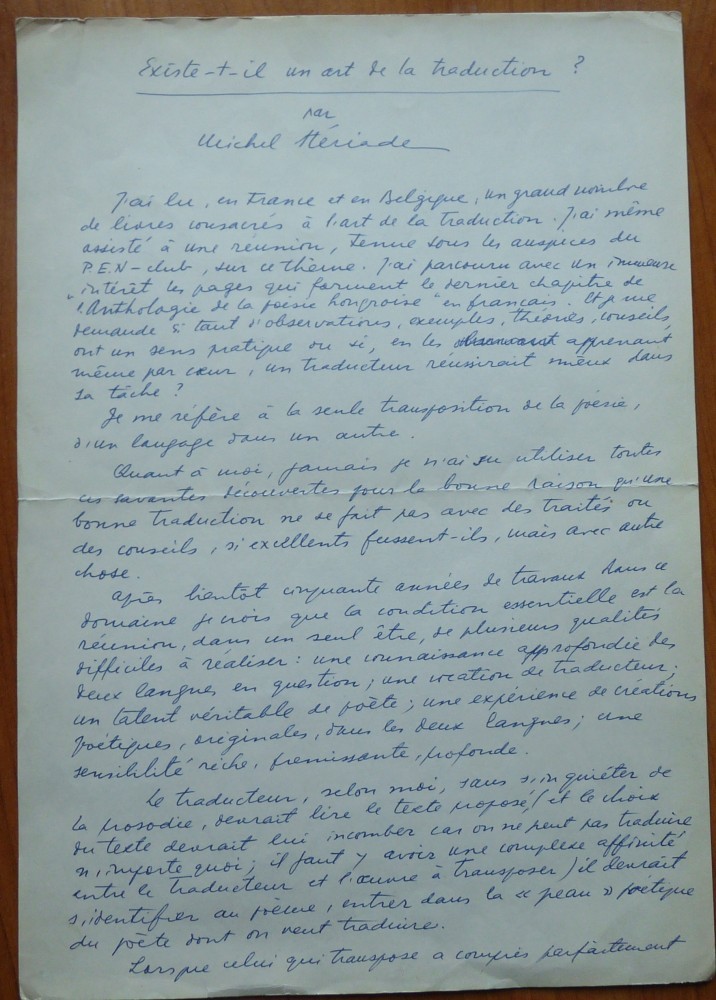 Existe-t-il un art de la traduction ?
par
Michel Stériade
J'ai lu, en France et en Belgique, un grand nombre
de livres consacrés à l'art de la traduction. J'ai même
assisté à une réunion, tenue sous les auspices du
P.E.N-club, sur ce thème. J'ai parcouru avec un immense
intérêt les pages qui forment le dernier chapitre de
"l'Anthologie de la poésie hongroise" en français. Et je me
demande si tant d'observations, exemples, théories, conseils,
ont un sens pratique ou si, en les apprenant
même par cœur, un traducteur réussirait mieux dans
sa tâche ?
Je me réfère à la seule transposition de la poésie,
d'un langage dans un autre.
Quant à moi, jamais je n'ai su utiliser toutes
ces savantes découvertes pour la bonne raison qu'une
bonne traduction ne se fait pas avec des traités ou
des conseils, si excellents fussent-ils, mais avec autre
chose.
Après bientôt cinquante années de travaux dans ce
domaine je crois que la condition essentielle est la
réunion, dans un seul être, de plusieurs qualités
difficiles à réaliser : une connaissance approfondie des
deux langues en question ; une vocation de traducteur ;
un talent véritable de poète ; une expérience de créations
poétiques, originales, dans les deux langues ; une
sensibilité riche, fremissante, profonde.
Le traducteur, selon moi, sans s'inquiéter de
la prosodie, devrait lire le texte proposé, (et le choix
du texte devrait lui incomber car on ne peut pas traduire
n'importe quoi ; il faut y avoir une complexe affinité
entre le traducteur et l'œuvre à transposer) il devrait
s'identifier au poème, entrer dans la « peau » poétique
du poète dont on veut traduire.
Lorsque celui qui transpose a compris parfaitement